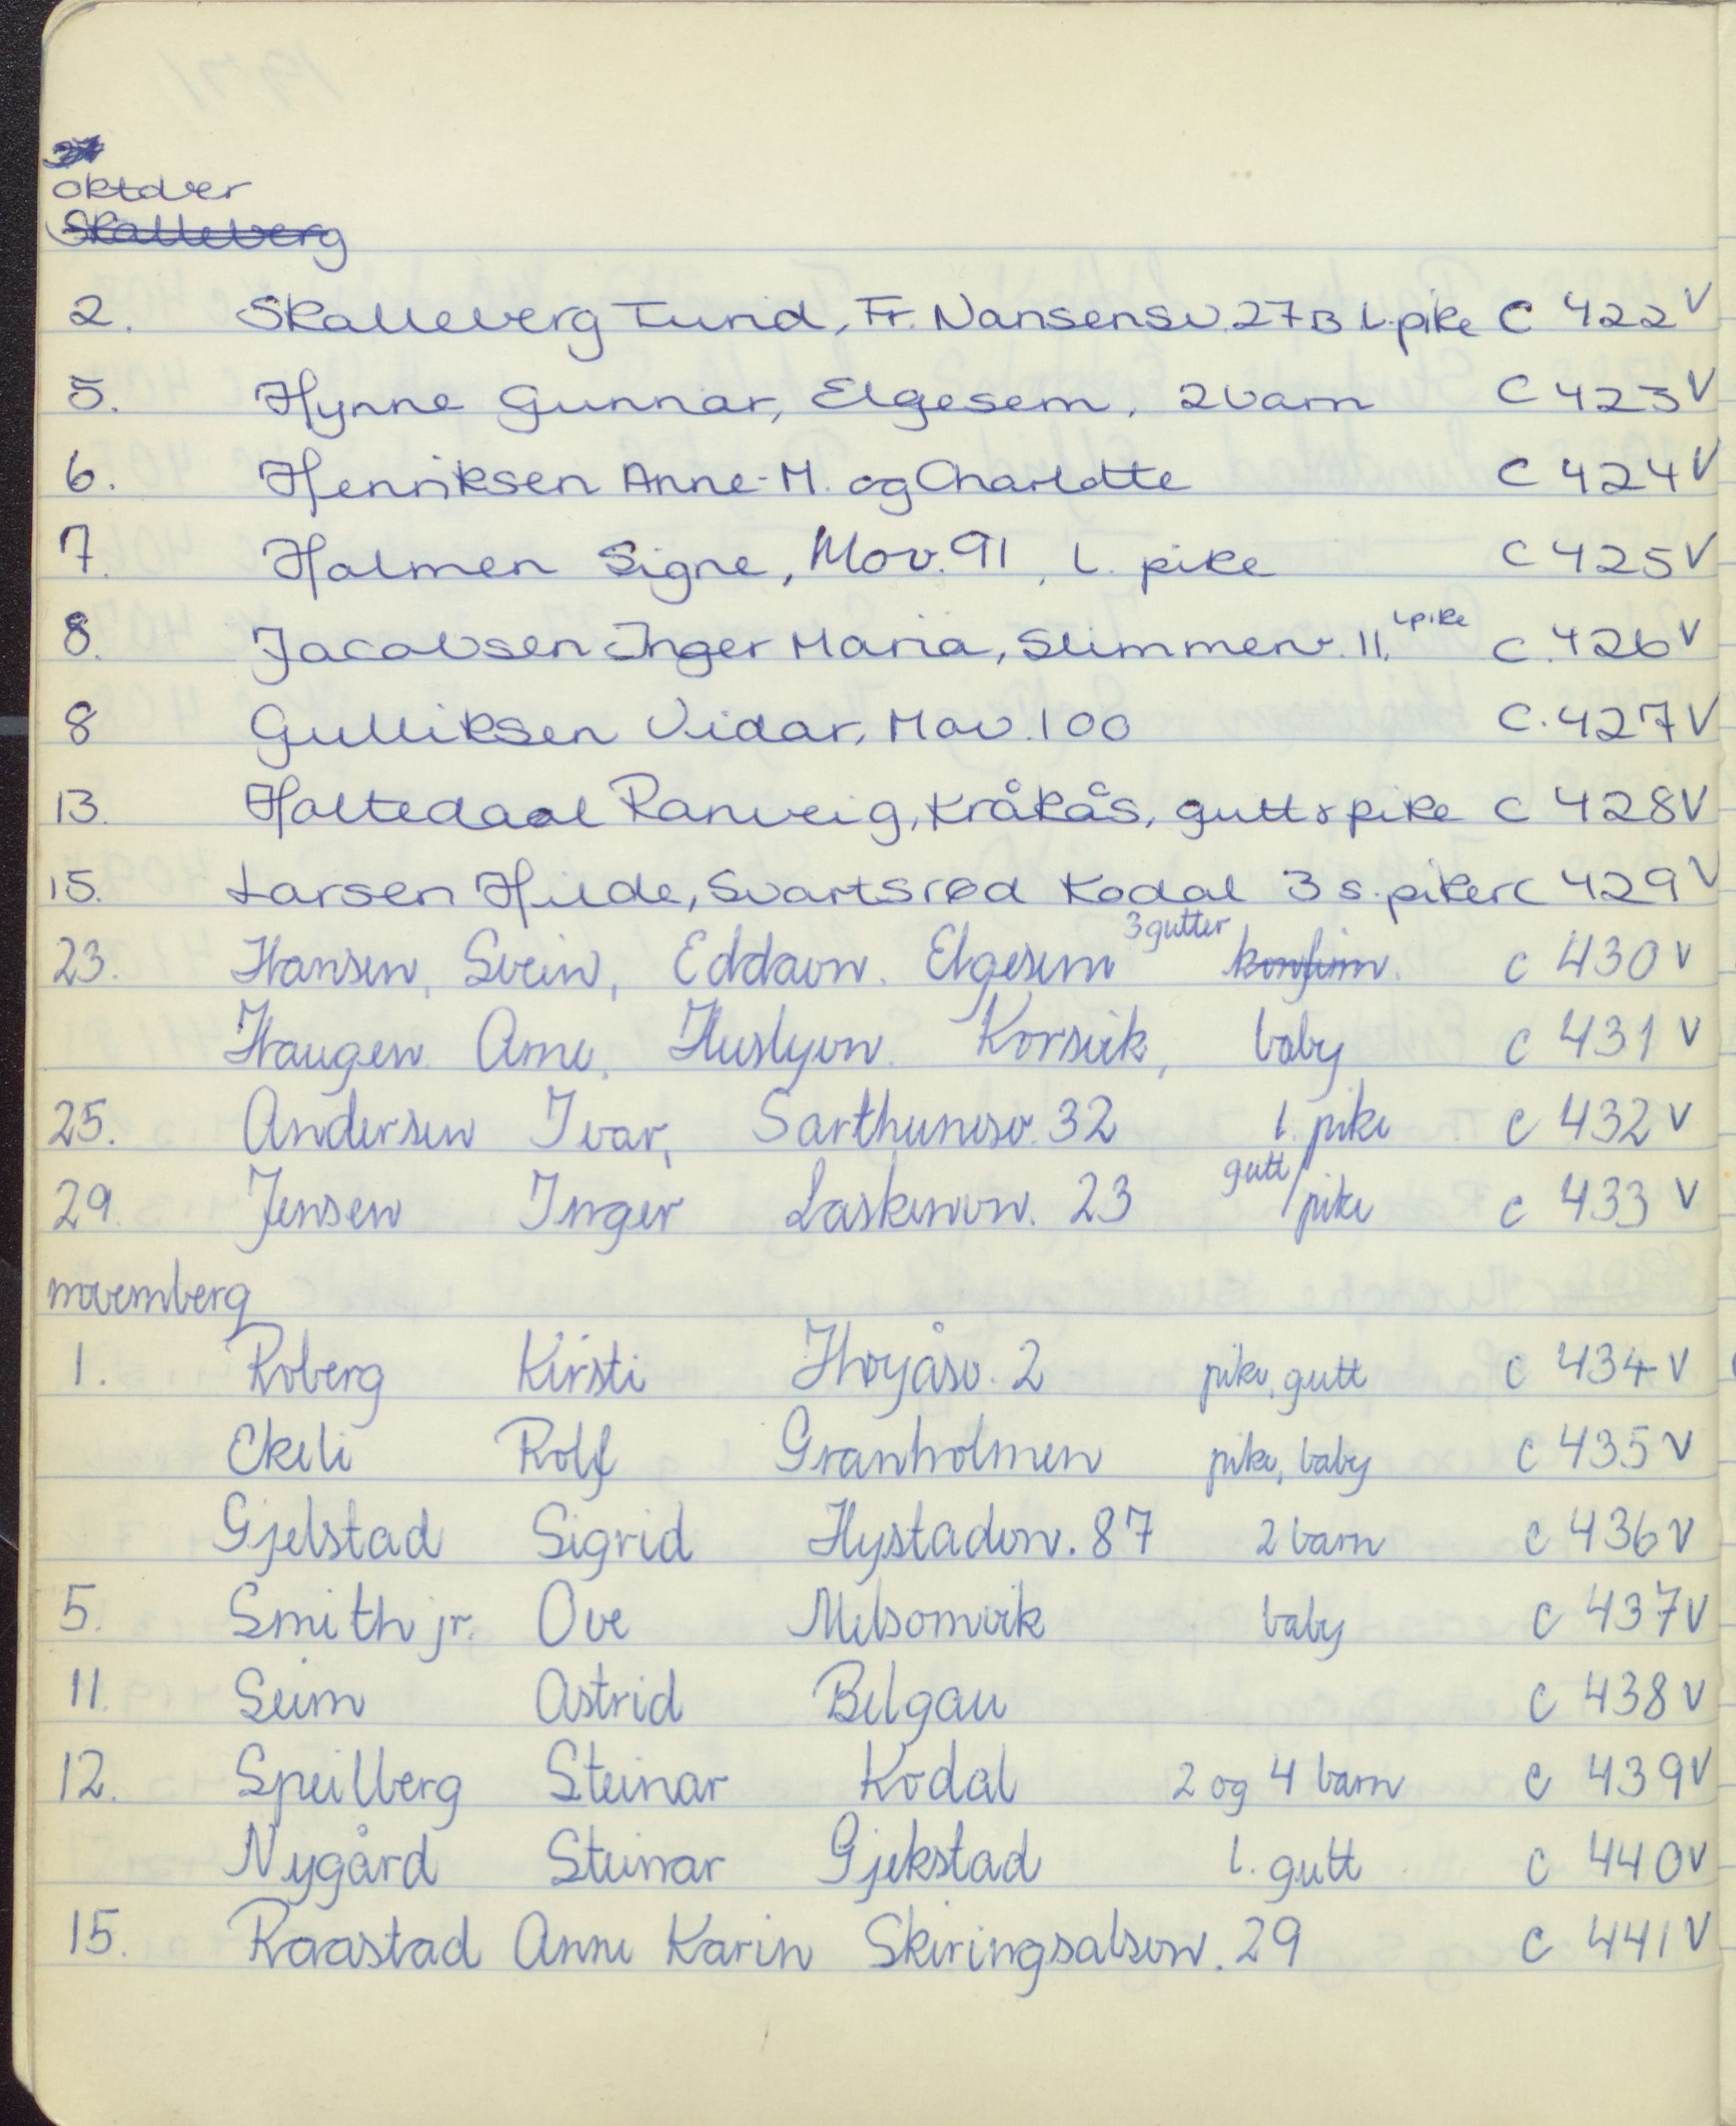 oktober
Skalleberg
2. Skalleberg Turid, Fr. Nansensv. 27B l. pike C 422 V
5. Hynne Gunnar, Elgesem, 2 barn C 423 V
6. Henriksen Anne-M. og Charlotte C 424 V
7. Holmen Signe, Mov. 91, l. pike C 425 V
8. Jacobsen Inger Maria, Slimmenv. 11, l pike C. 426 V
8 Gulliksen Vidar, Mov. 100 C. 427 V
13. Holtedaal Ranveig, Kråkås, gutt & pike C 428 V
15. Larsen Hilde, Svartsrød Kodal 3 s. piker C 429 V
23. Hansen, Svein, Eddavn. Elgesem 3 gutter konfirm. C 430 V
Haugen Arne, Huslyvn. Korsvik, baby C 431 V
25. Andersen Ivar, Sarthunesv. 32 l. pike C 432 V
29. Jensen Inger Laskenvn. 23 gutt/pike C 433 V
novemberg
1. Roberg Kirsti Høyåsv. 2 pike, gutt C 434 V
Ekeli Rolf Granholmen pike, baby C 435 V
Gjelstad Sigrid Hystadvn. 87 2 barn C 436 V
5. Smith jr. Ove Melsomvik baby C 437 V
11. Seim Astrid Belgau C 438 V
12. Speilberg Steinar Kodal 2 og 4 barn C 439 V
Nygård Steinar Gjekstad l. gutt C 440 V
15. Raastad Anne Karin Skiringsalsvn. 29 C 441 V